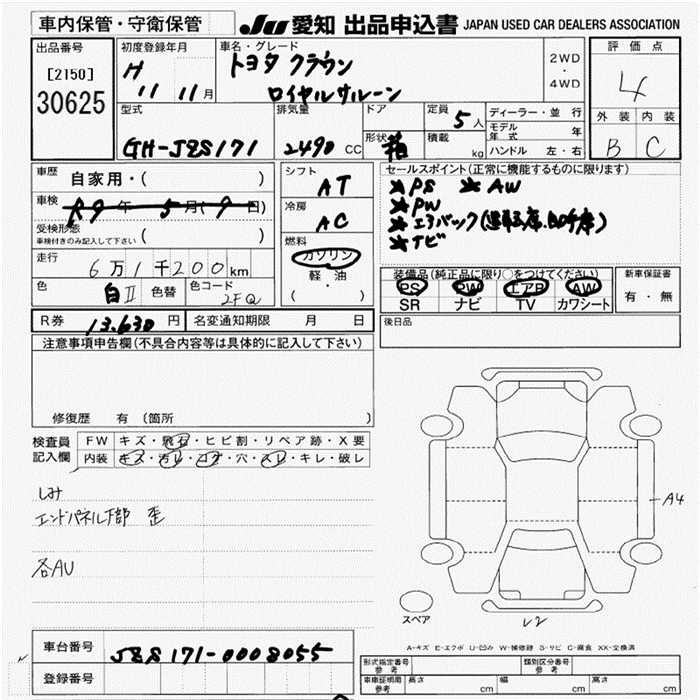 車内保管・守衛保管
JU 愛知 出品申込書 JAPAN USED CAR DEALERS ASSOCIATION
出品番号
[2150]
30625
初度登録年月
H 11 11月
車名・グレード
トヨタ クラウン
ロイヤルサルーン
2WD
・
4WD
評価点
4
外装 内装
B C
型式
GH-JZS171
排気量
2490 CC
ドア
形状
箱
定員
5人
積載
kg
ディーラー・並行
モデル年式 年
ハンドル 左・右
車歴
自家用・( )
車検
R9年 5月(9日)
受検形態
車検付きのみ記入して下さい
( )
走行
6万1千200km
色
白II
色替
色コード
2FQ
シフト
AT
冷房
AC
燃料
ガソリン
軽・油
( )
セールスポイント(正常に機能するものに限ります)
★PS ★AW
★PW
★エアバック(運転席.助手席)
★ナビ
装備品(純正品に限り○をつけてください)
PS PW エアB AW
SR ナビ TV カワシート
新車保証書
有・無
R券 13.630円
名変通知期限 月 日
後日品
注意事項申告欄(不具合内容等は具体的に記入して下さい)
修復歴 有 (箇所
検査員
記入欄
FW キズ・飛石・ヒビ割・リペア跡・X要
内装 キズ・汚レ・コゲ・穴・スレ・キレ・破レ
しみ
エンドパネル下部 歪
各AU
A4
スペア
U2
A-キズ E-エクボ U-凹み W-補修跡 S-サビ C-腐食 XX-交換済
車台番号
JZS171-0008055
登録番号
形式指定番号
参考
類別区分番号
参考
車庫証明用
参考
長さ cm 幅 cm 高さ cm